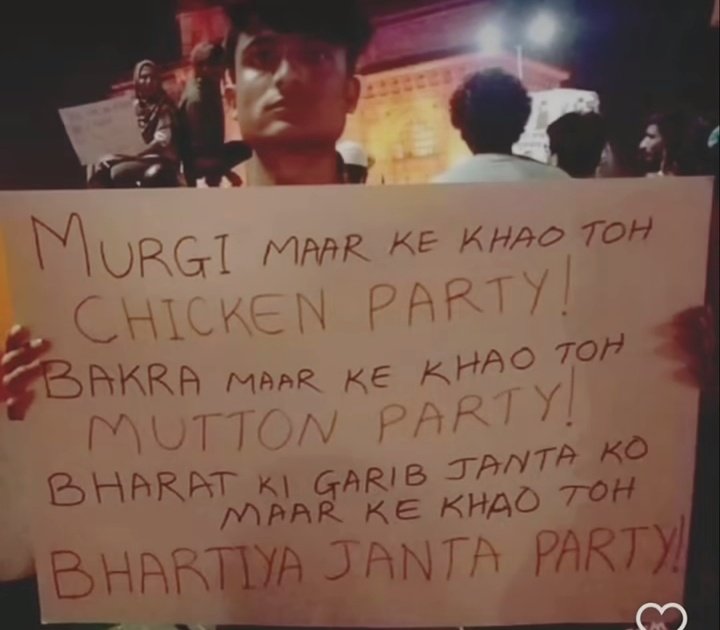 MURGI MAAR KE KHAO TOH
CHICKEN PARTY!
BAKRA MAAR KE KHAO TOH
MUTTON PARTY!
BHARAT KI GARIB JANTA KO
MAAR KE KHAO TOH
BHARTIYA JANTA PARTY!